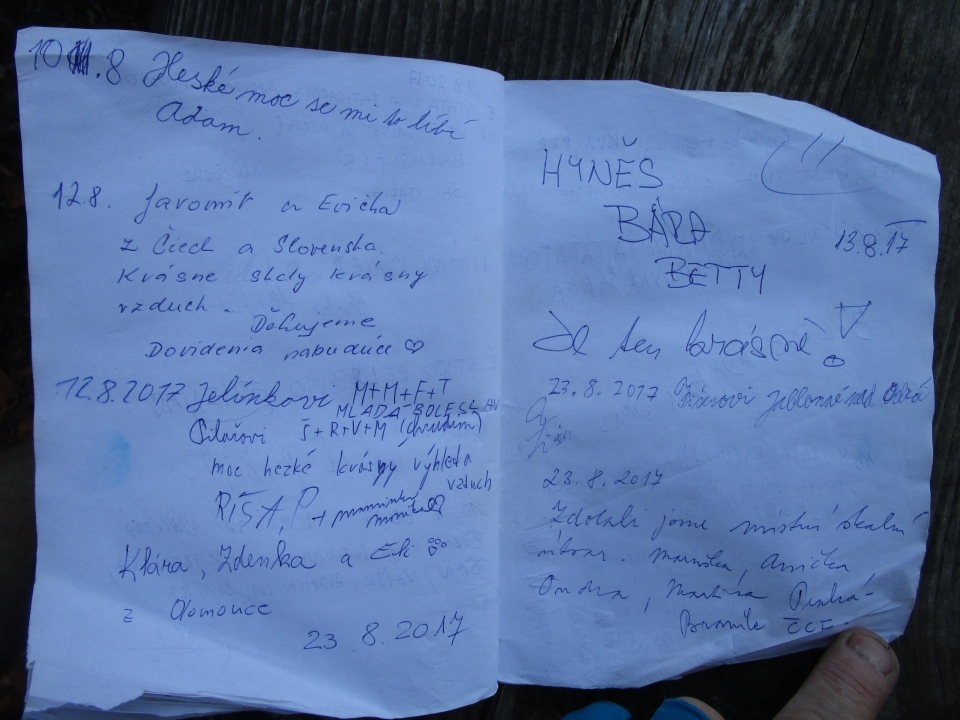 10.8 Heské moc se mi to líbí
Adam.
12.8. Jaromír a Evička
z Čiech a Slovenska.
Krásne skaly krásny
vzduch.
Ďakujeme
Dovidenia nabudúce ♡
12.8.2017 Jelínkovi M+M+F+T
MLADÁ BOLESLAV
Š+R+V+M (chrudim)
moc hezké krásný výhled a
vzduch
RÍŠA, P + maminka
Klára, Zdenka a Eli
z Olomouce
23.8.2017
HYNĚS
BÁRA
13.8.17
BETTY
Je ten krásně!
23.8.2017 Jablonné nad
23.8.2017
Zdolali jsme místní skalní
útvar. Maruška, Anička
Ondra, Martina
ČCE.